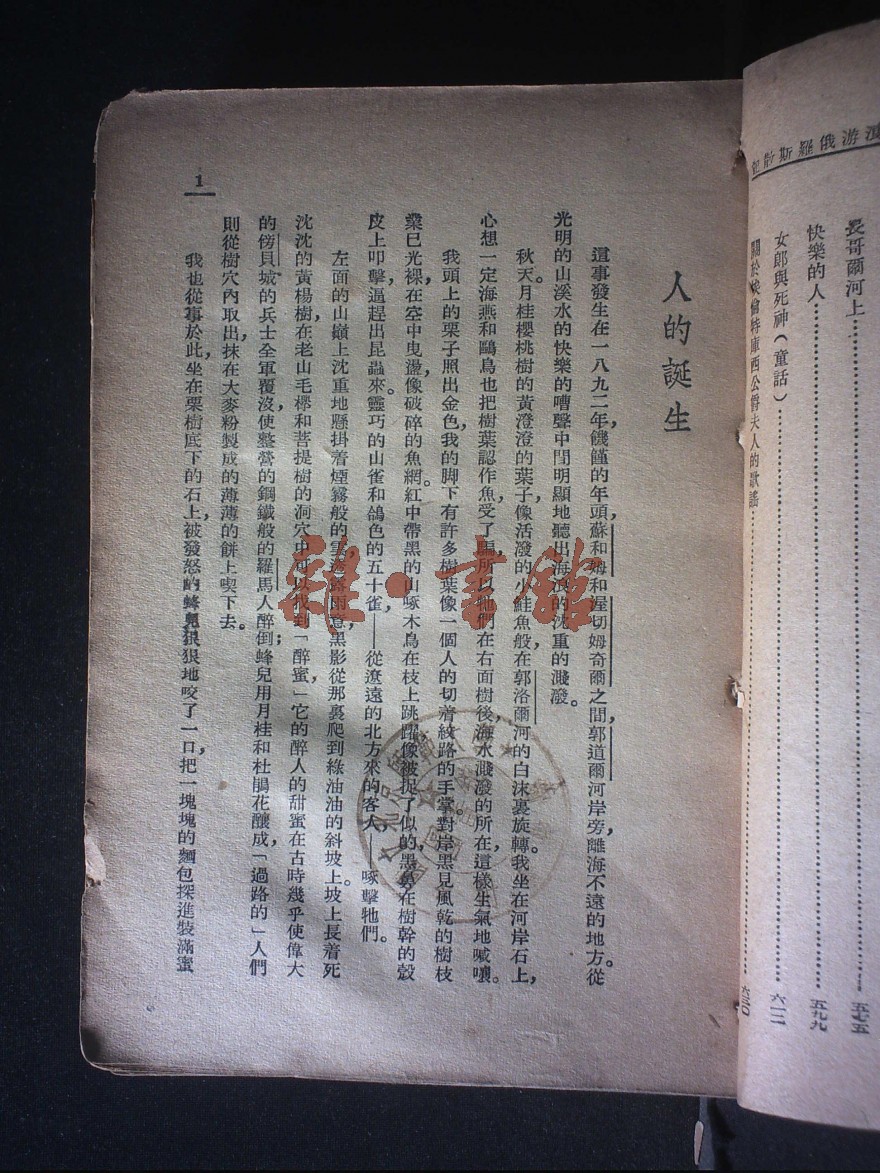 漫游俄羅斯散記
長哥爾河上……五七五
快樂的人……五九九
女郎與死神（童話）……六一二
關於埃倫特庫西公爵夫人的歌謠……六三〇
人的誕生
這事發生在一八九二年，饑饉的年頭，蘇和姆和渥切姆奇爾之間，郭道爾河岸旁，離海不遠的地方。從
光明的山溪水的快樂的嘈聲中間明顯地聽出海浪的沈重的濺潑。
秋天。月桂櫻桃樹的黃澄澄的葉子，像活潑的小鮭魚般在郭洛爾河的白沫裏旋轉。我坐在河岸石上，
心想一定海燕和鷗鳥也把樹葉認作魚，受了騙，所以牠們在右面樹後，海水濺潑的所在，這樣生氣地喊嚷。
我頭上的栗子照出金色，我的脚下有許多樹葉像一個人的切着紋路的手掌。對岸黑見風乾的樹枝
業已光裸，在空中曳盪，像破碎的魚網。紅中帶黑的山啄木鳥在枝上跳躍，像被捉了似的，黑鼻在樹幹的殼
皮上叩擊，逼趕出昆蟲來。靈巧的山雀和鴿色的五十雀，——從遼遠的北方來的客人——啄擊牠們。
左面的山巔上沈重地懸掛着煙霧般的雲，透露雨意，黑影從那裏爬到綠油油的斜坡上。坡上長着死
沈沈的黃楊樹，在老山毛櫸和菩提樹的洞穴中可以找到「醉蜜，」它的醉人的甜蜜在古時幾乎使偉大
的傍貝城的兵士全軍覆沒，使整營的鋼鐵般的羅馬人醉倒；蜂兒用月桂和杜鵑花釀成，「過路的」人們
則從樹穴內取出，抹在大麥粉製成的薄薄的餅上喫下去。
我也從事於此，坐在栗樹底下的石上，被發怒的蜂兒狠狠地咬了一口，把一塊塊的麵包探進裝滿蜜
1
雜·書館